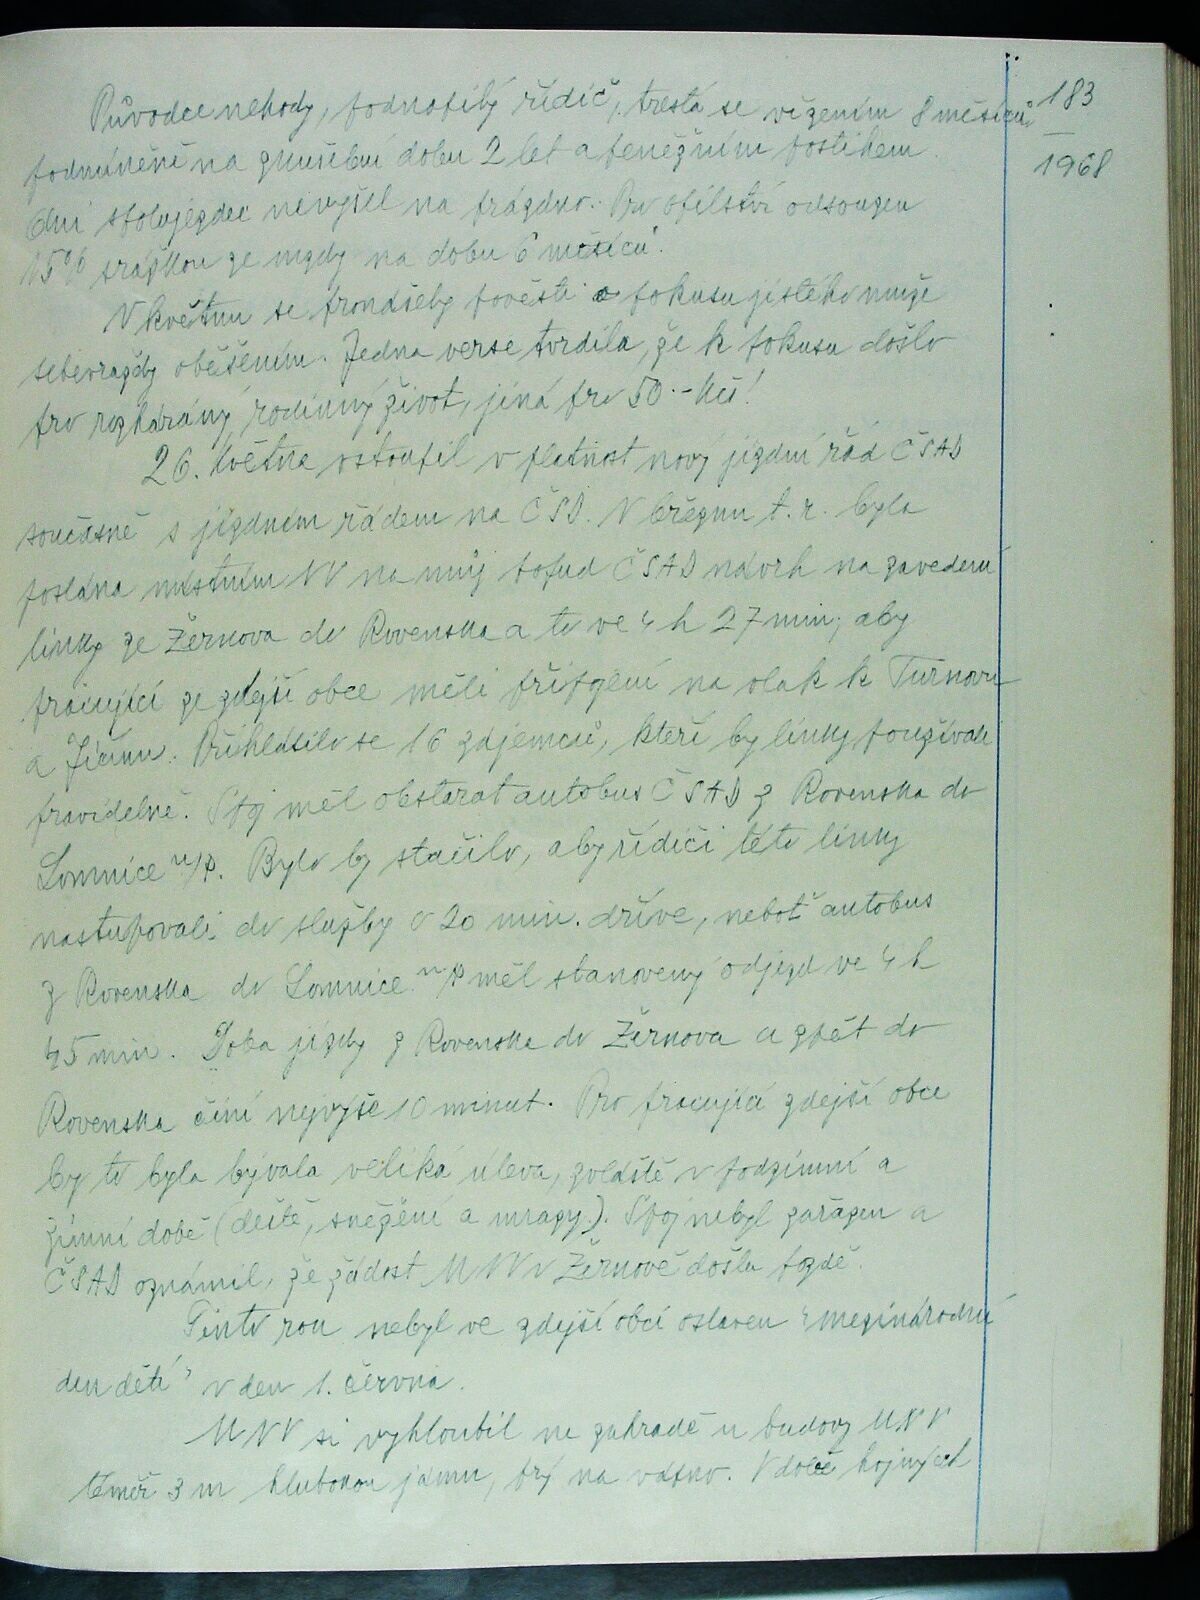 183
1968
Původce nehody, podnapilý řidič, trestá se vězením 8 měsíců
podmíněně na zkušební dobu 2 let a peněžním postihem.
Ani spolujezdec nevyšel na prázdno. Pro opilství odsouzen
15% srážkou ze mzdy na dobu 6 měsíců.
V květnu se pronášely pověsti o pokusu jistého muže
sebevraždy oběšením. Jedna verse tvrdila, že k pokusu došlo
pro rozháraný rodinný život, jiná pro 50.- Kčs!
26. května vstoupil v platnost nový jízdní řád ČSAD
současně s jízdním řádem na ČSD. V březnu t. r. byla
poslána místním NV na můj popud ČSAD návrh na zavedení
linky ze Žernova do Rovenska a to ve 4 h 27 min, aby
pracující ze zdejší obce měli přípojení na vlak k Turnovu
a Jičínu. Přihlásilo se 16 zájemců, kteří by linky používali
pravidelně. Spoj měl obstarat autobus ČSAD z Rovenska do
Lomnice n/P. Bylo by stačilo, aby řidiči této linky
nastupovali do služby o 20 min. dříve, neboť autobus
z Rovenska do Lomnice n/P měl stanovený odjezd ve 4 h
45 min. Doba jízdy z Rovenska do Žernova a zpět do
Rovenska činí nejvýše 10 minut. Pro pracující zdejší obce
by to byla bývala veliká úleva, zvláště v podzimní a
zimní době (deště, sněžení a mrazy). Spoj nebyl zařazen a
ČSAD oznámil, že žádost MNV v Žernově došla pozdě.
Tento rok nebyl ve zdejší obci oslaven "mezinárodní
den dětí" v den 1. června.
MNV si vyhloubil na zahradě u budovy MNV
téměř 3 m hlubokou jámu, prý na vápno. V době hojných